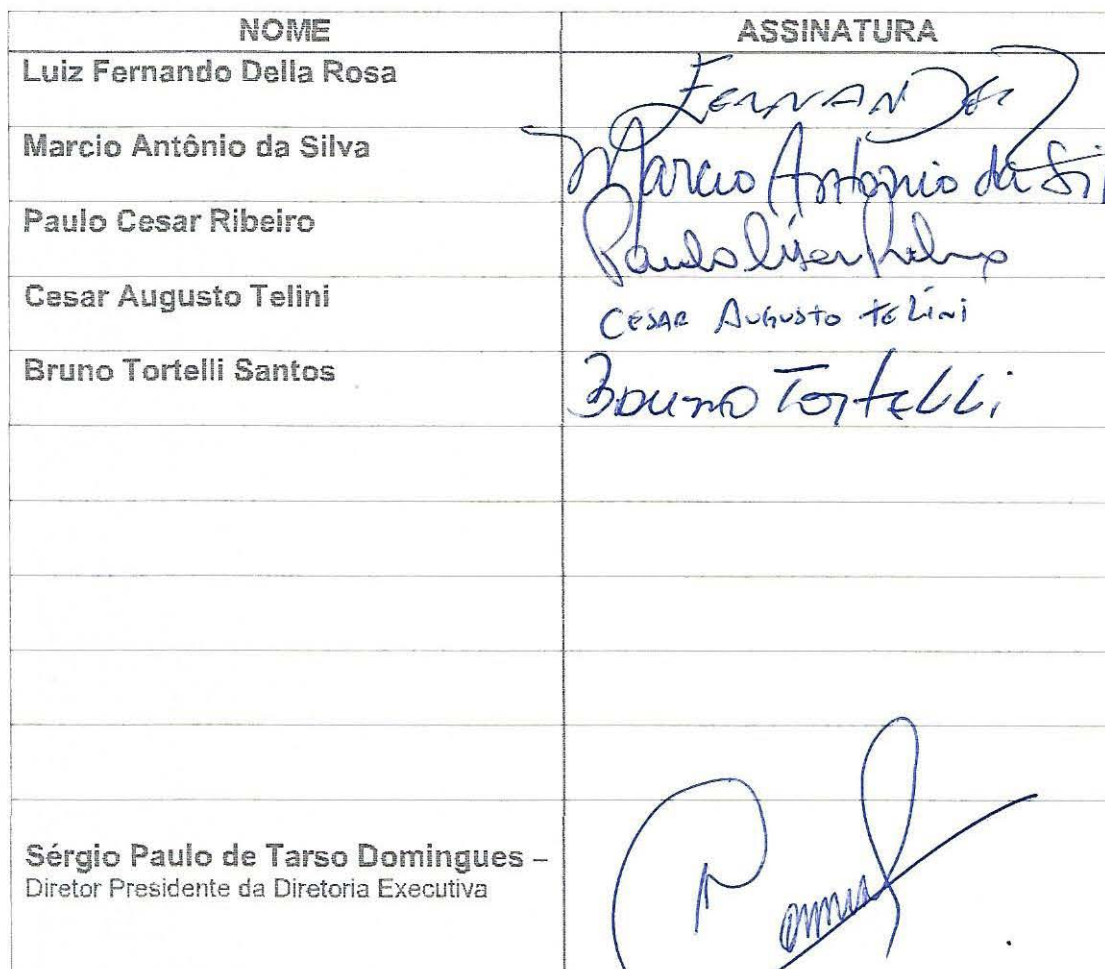 NOME ASSINATURA
Luiz Fernando Della Rosa
Marcio Antônio da Silva Marcio Antonio da Sil
Paulo Cesar Ribeiro Paulo
Cesar Augusto Telini CESAR AUGUSTO TELINI
Bruno Tortelli Santos Bruno Tortelli
Sérgio Paulo de Tarso Domingues –
Diretor Presidente da Diretoria Executiva